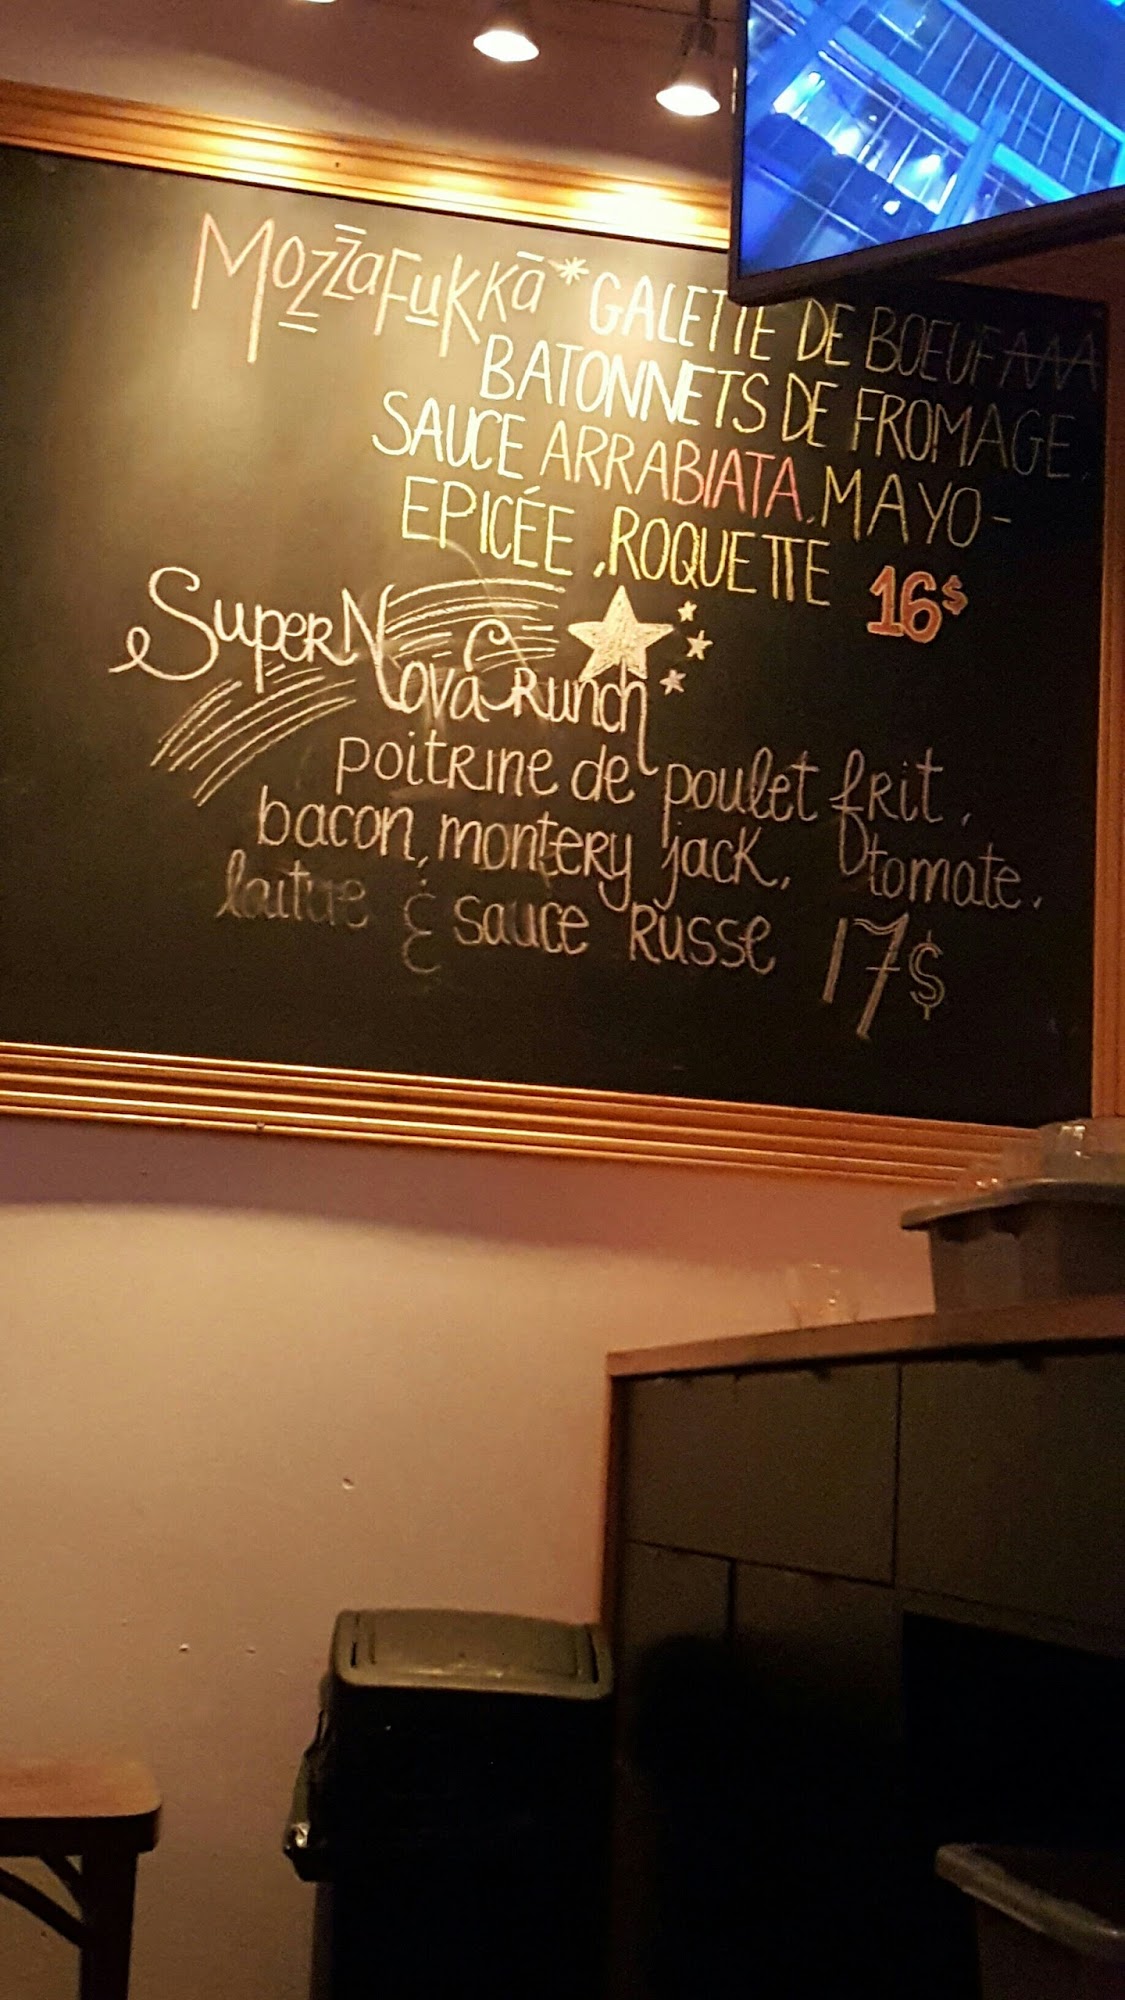 MozzaFukkā * GALETTE DE BOEUF AAA
BATONNETS DE FROMAGE,
SAUCE ARRABIATA, MAYO-
EPICÉE, ROQUETTE 16$
SuperNova Crunch
poitrine de poulet frit,
bacon, montery jack, tomate,
laitue & sauce Russe 17$